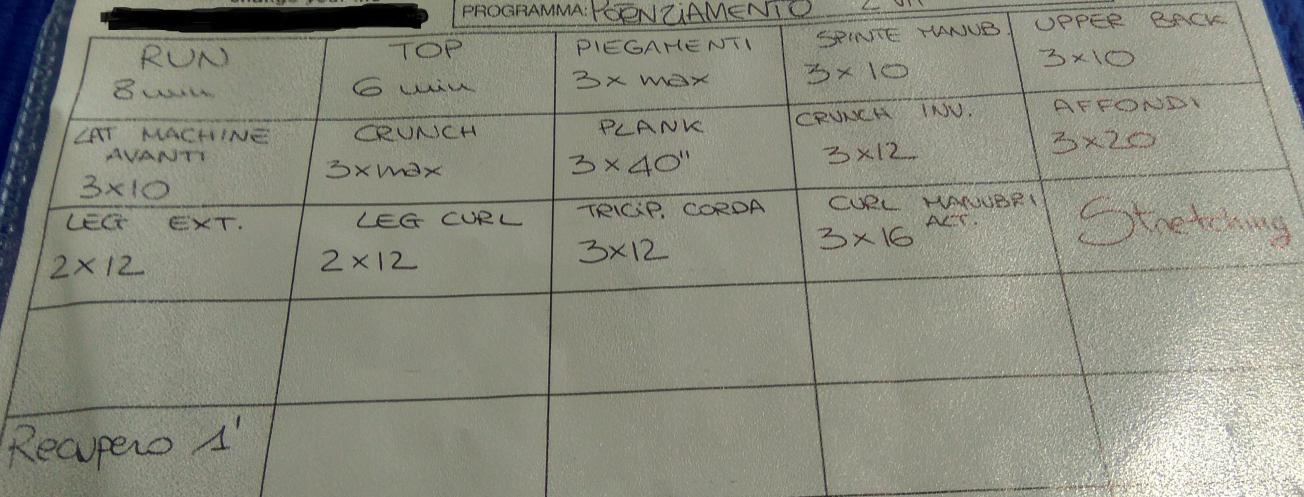 PROGRAMMA: POENZIAMENTO
RUN
8 min
TOP
6 min
PIEGAMENTI
3x max
SPINTE MANUB.
3x10
UPPER BACK
3x10
LAT MACHINE
AVANTI
3x10
CRUNCH
3xmax
PLANK
3x40"
CRUNCH INV.
3x12
AFFONDI
3x20
LEG EXT.
2x12
LEG CURL
2x12
TRICIP. CORDA
3x12
CURL MANUBRI
ACT.
3x16
Stretching
Recupero 1'